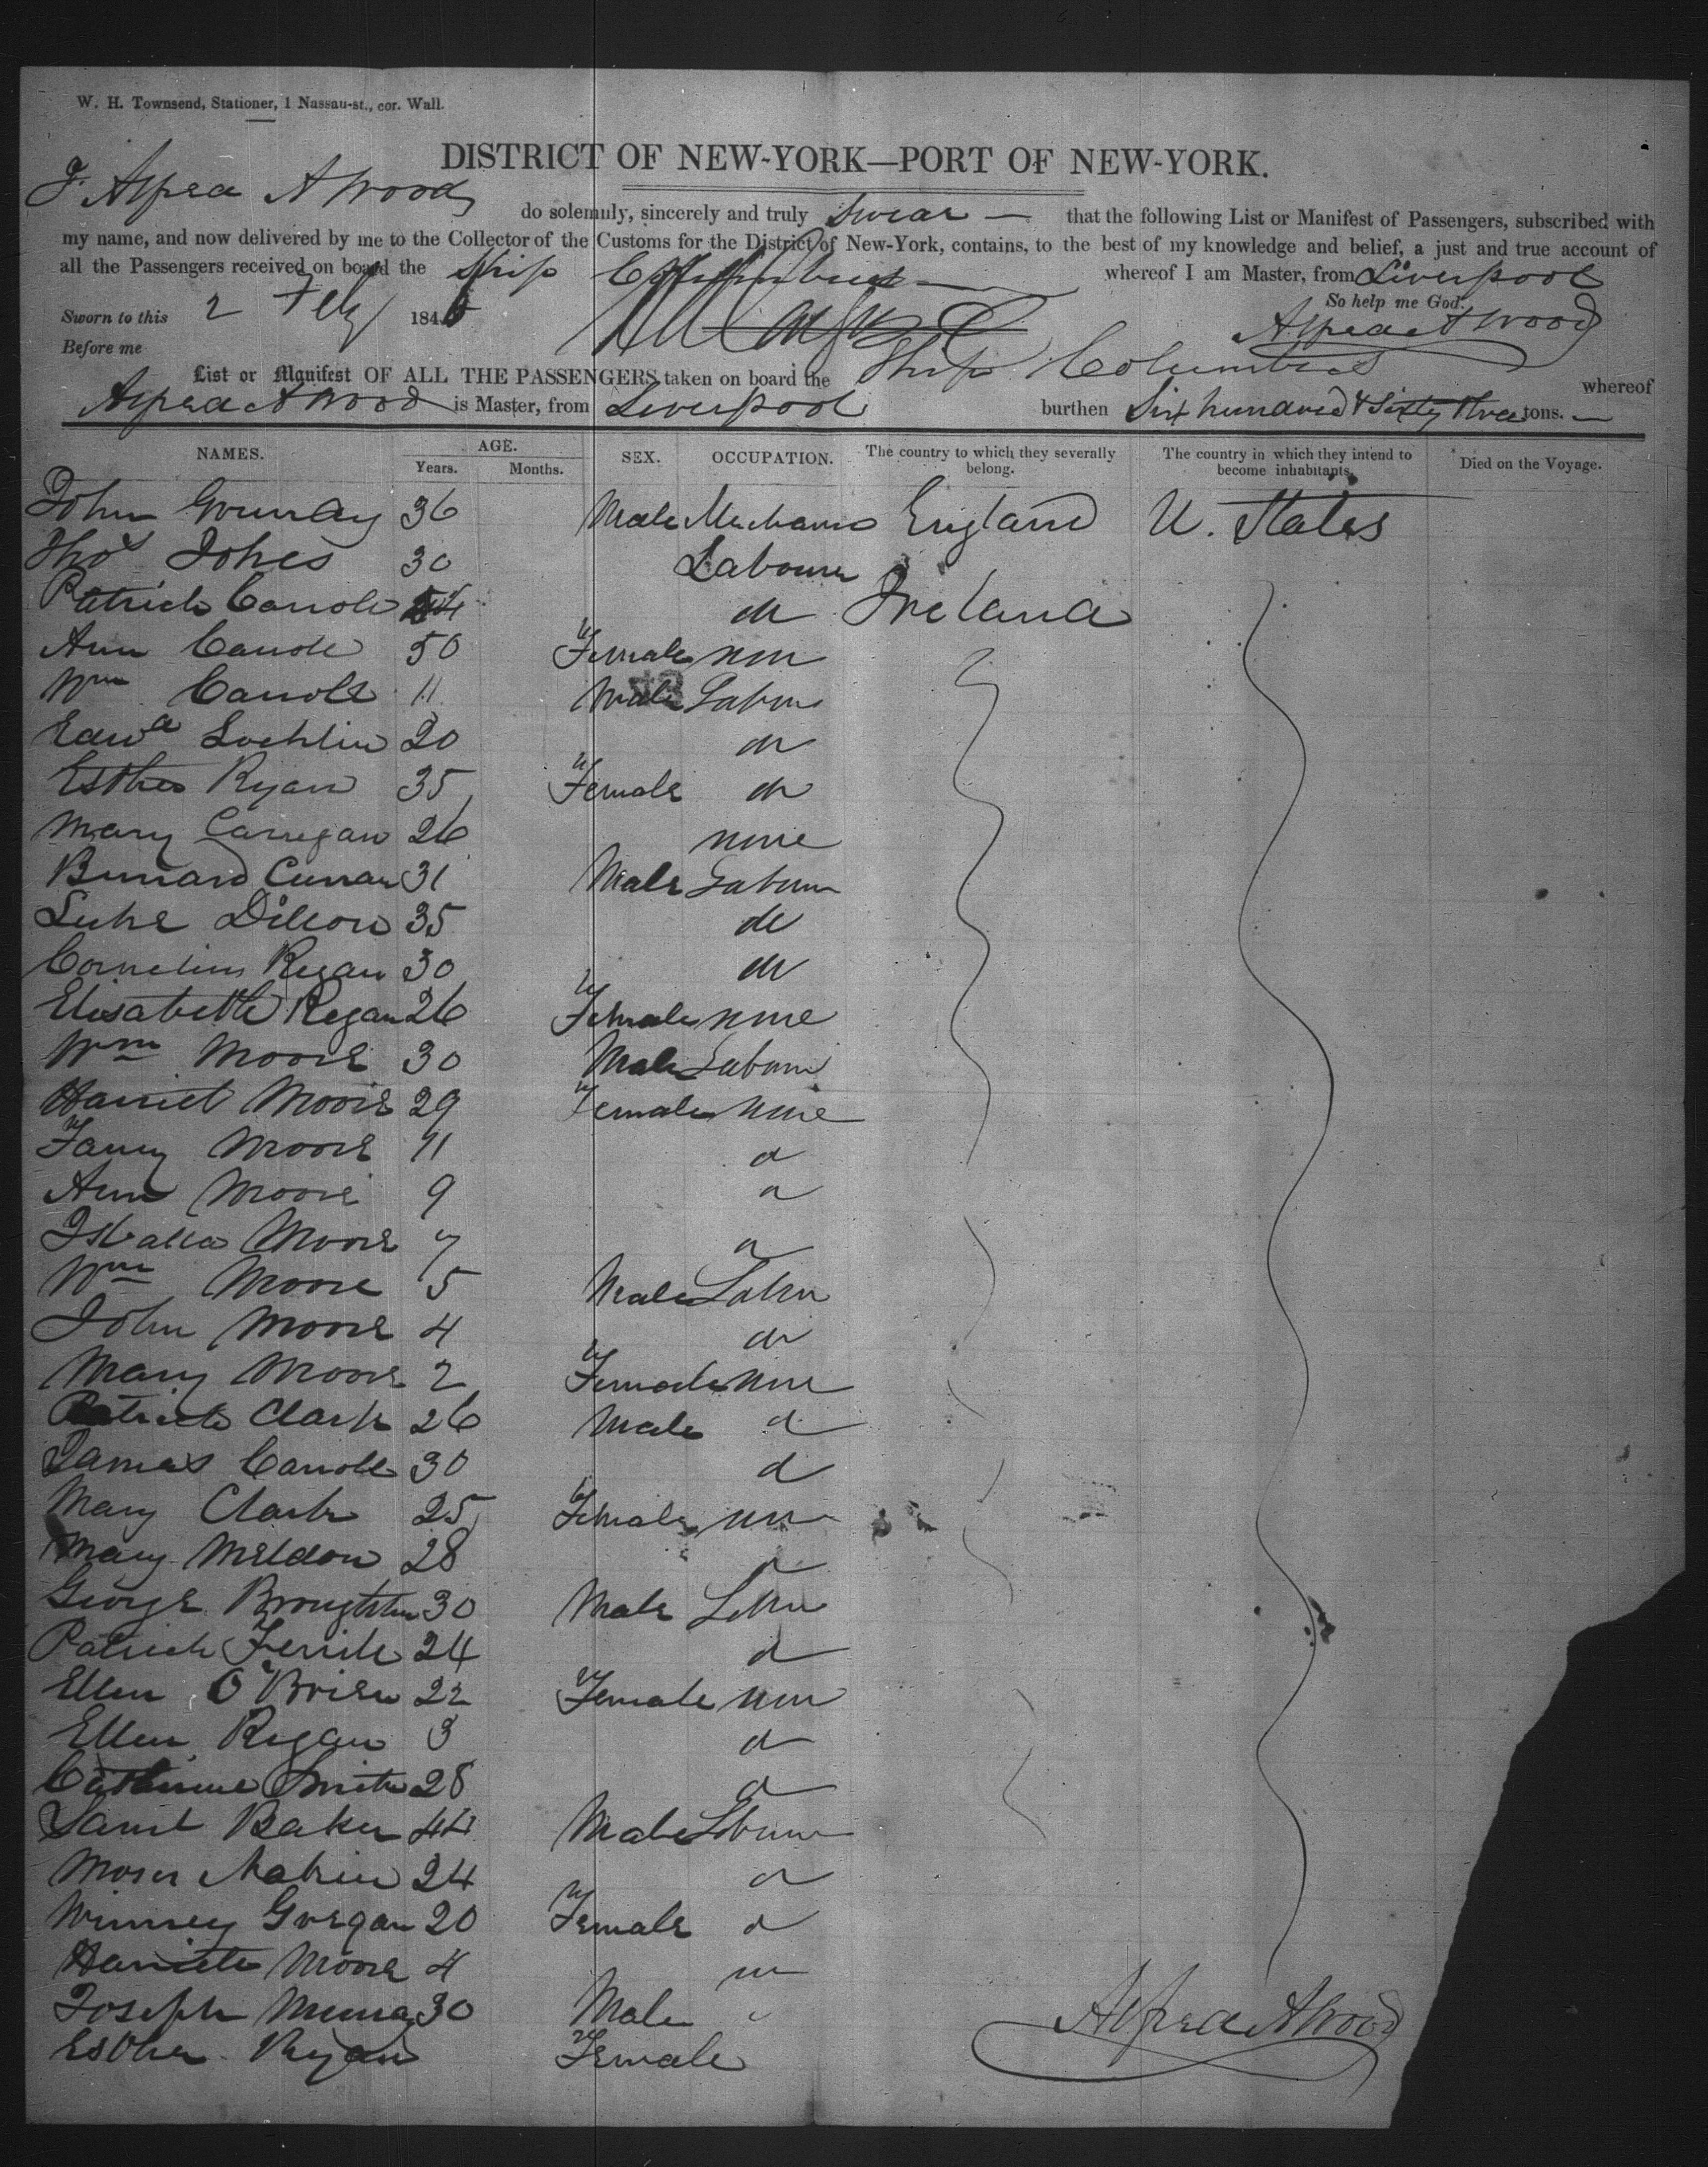 W. H. Townsend, Stationer, 1 Nassau-st., cor. Wall.
DISTRICT OF NEW-YORK—PORT OF NEW-YORK.
I. Alfred A Wood do solemnly, sincerely and truly Swear — that the following List or Manifest of Passengers, subscribed with
my name, and now delivered by me to the Collector of the Customs for the District of New-York, contains, to the best of my knowledge and belief, a just and true account of
all the Passengers received on board the Ship Columbus whereof I am Master, from Liverpool
So help me God.
Sworn to this 2 Feby 1846 Alfred A Wood
Before me
List or Manifest OF ALL THE PASSENGERS taken on board the Ship Columbus whereof
Alfred A Wood is Master, from Liverpool burthen Six hundred & Sixty three tons. —
NAMES. AGE. Years. Months. SEX. OCCUPATION. The country to which they severally belong. The country in which they intend to become inhabitants. Died on the Voyage.
John 36 Male Mechanic England U. States
Thos Jones 30 Labourer
Patrick Carroll 54 do Ireland
Ann Carroll 50 Female non
Wm Carroll 11 Male Labour
Edwd Lochlin 20 do
Esther Ryan 35 Female do
Mary Carregan 26 none
Bernard Curran 31 Male Labour
Luke Dillon 35 do
Cornelius Regan 30 do
Elisabeth Regan 26 Female none
Wm Moore 30 Male Labour
Harriet Moore 29 Female none
Fanny Moore 11 d
Ann Moore 9 d
Isballa Moore 7 d
Wm Moore 5 Male Labr
John Moore 4 do
Mary Moore 2 Female non
Patrick Clark 26 Male d
James Carroll 30 d
Mary Clark 25 Female non
Mary Meldon 28 d
George Broughton 30 Male Labr
Patrick 24 d
Ellen O'Brien 22 Female non
Ellen Regan 3 d
Catherine Smith 28 d
Saml Baker 44 Male Labour
Moses 24 d
Winney Gregan 20 Female d
Harriete Moore 4 non
Joseph 30 Male
Esther Ryan Female
Alfred A Wood